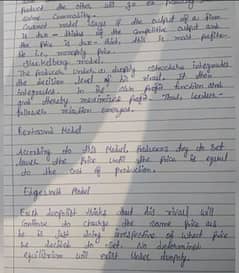 product, the other will go on producing
same commodity.
Cournot model says if the output of a firm
is two-thirds of the competitive output and
the price is two-third, this is most profita-
ble i.e. monopoly price.
Stackelberg model.
The producer under a duopoly integrates
the decision of his rival, it then
integrates. In its own profit function and
and thereby maximises profit. Thus, leader-
follower relation emerges.
Bertrand Model
According to this Model, Producers try to set
lower the price until the price is equal
to the cost of production.
Edgeworth Model
Each duopolist thinks that his rival will
continue to charge the same price as
he is just doing irrespective of what price
he decided to set. No determined
equilibrium will exist under duopoly.